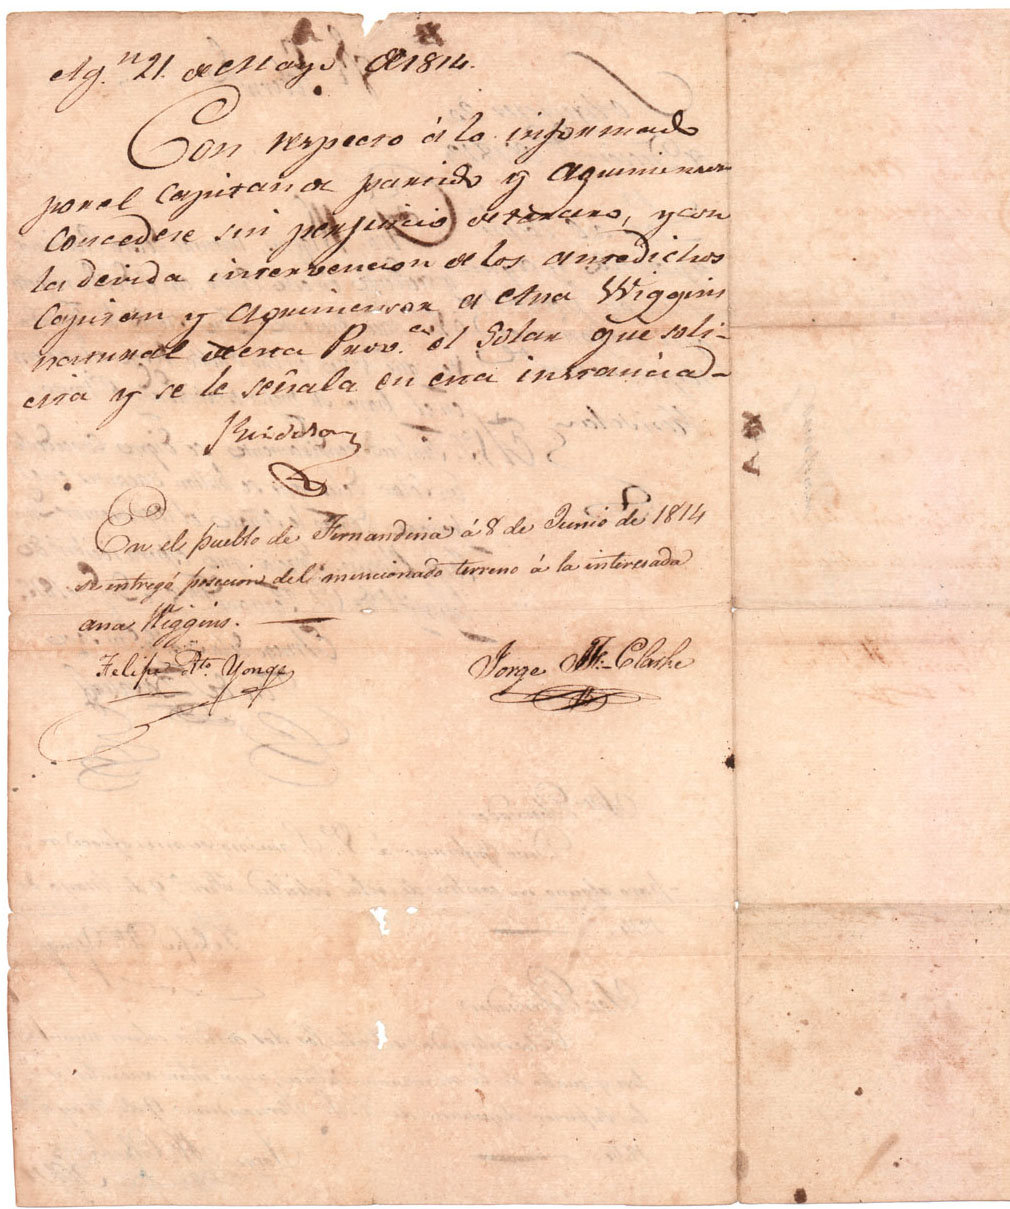 Ag.n 21. de Mayo de 1814.
Con respecto á lo informado
por el Capitan de partido y Agrimensor
Concedese sin perjuicio de tercero, y con
la devida intervencion de los antedichos
Capitan y Agrimensor a Ana Wiggins
natural de esta Prov.ca el Solar que soli-
cita y se le señala en esta instancia-
Kindelan
En el pueblo de Fernandina á 8 de Junio de 1814
se entregó posicion del mencionado terreno á la interesada
ana Wiggins.
Felipe Rto. Yonge
Jorge J. F. Clarke